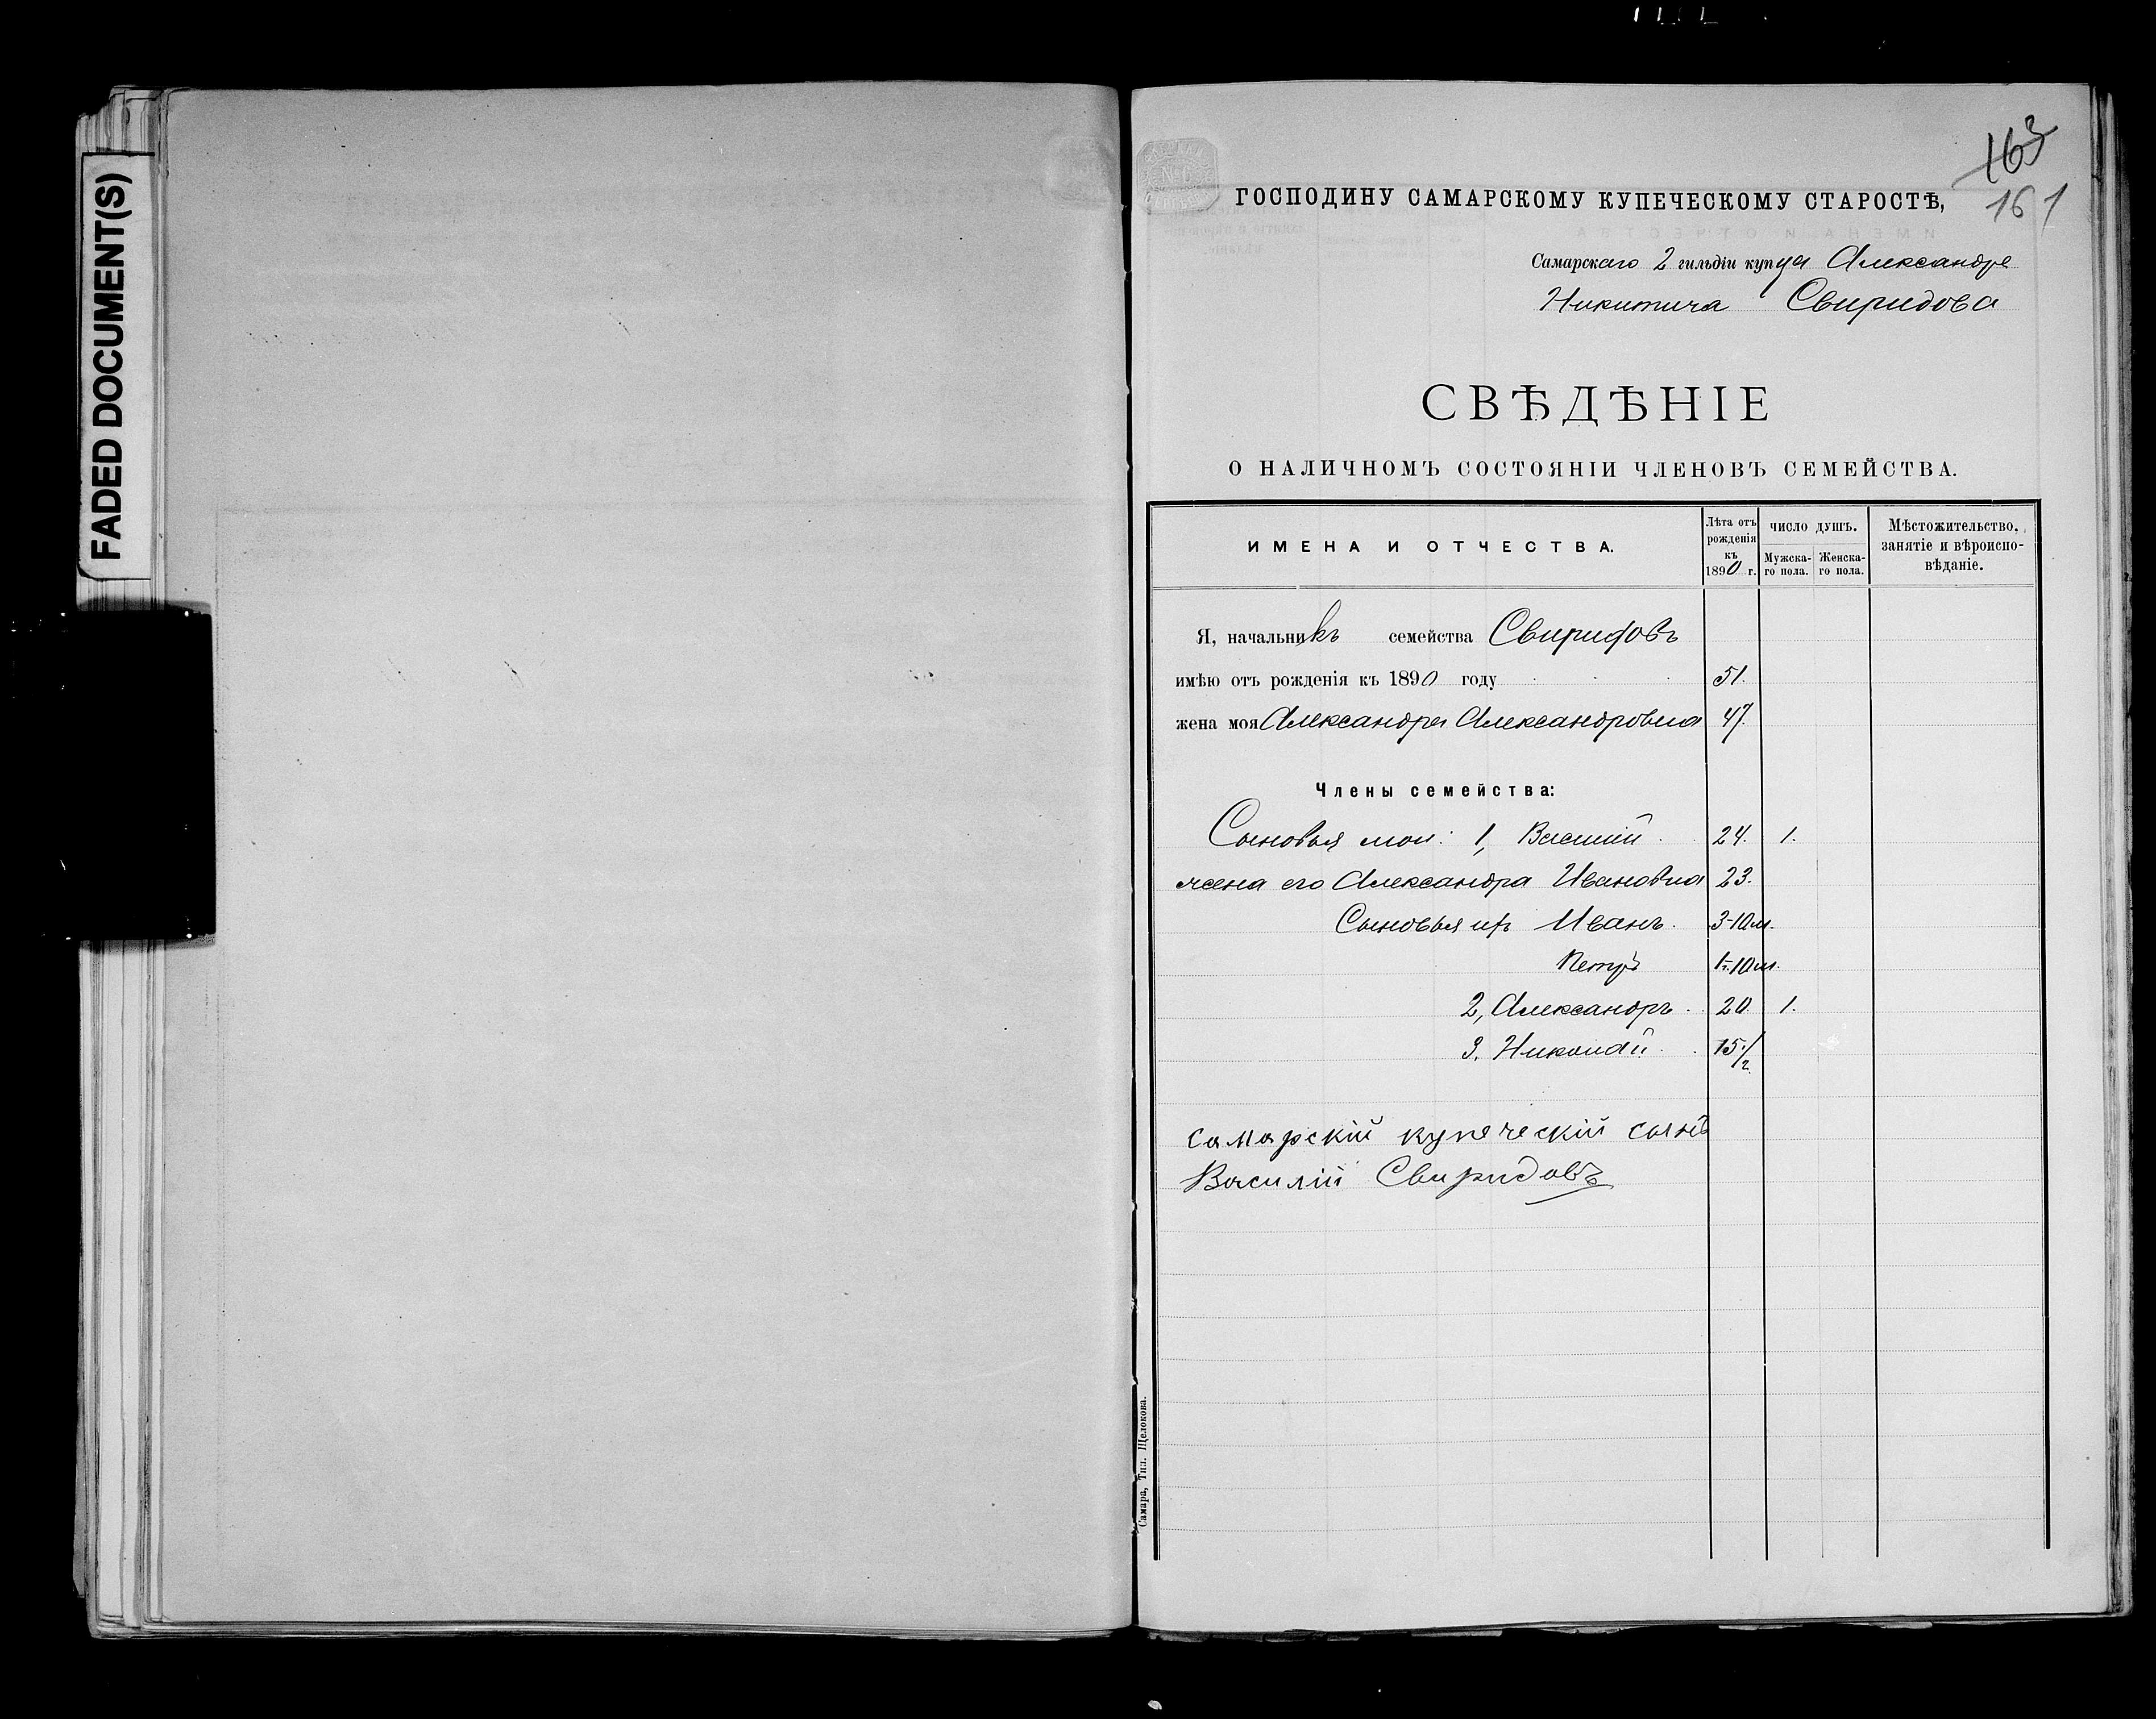 FADED DOCUMENT(S)
163
161
ГОСПОДИНУ САМАРСКОМУ КУПЕЧЕСКОМУ СТАРОСТѢ,
Самарскаго 2 гильдіи купца Александра
Никитича Свиридова
СВѢДѢНІЕ
О НАЛИЧНОМЪ СОСТОЯНІИ ЧЛЕНОВЪ СЕМЕЙСТВА.
ИМЕНА И ОТЧЕСТВА.
Лѣта отъ рожденія къ 1890 г.
ЧИСЛО ДУШЪ.
Мужска-го пола.
Женска-го пола.
Мѣстожительство, занятіе и вѣроиспо-вѣданіе.
Я, начальникъ семейства Свиридовъ
имѣю отъ рожденія къ 1890 году 51.
жена моя Александра Александровна 47.
Члены семейства:
Сыновья мои: 1, Василій 24. 1.
жена его Александра Ивановна 23.
Сыновья ихъ Иванъ. 3-10 м.
Петръ 1г.10 м.
2, Александръ. 20. 1.
3. Николай. 15 1/2
Самарскій купеческій сынъ
Василій Свиридовъ
Самара, Тип. Щелокова.